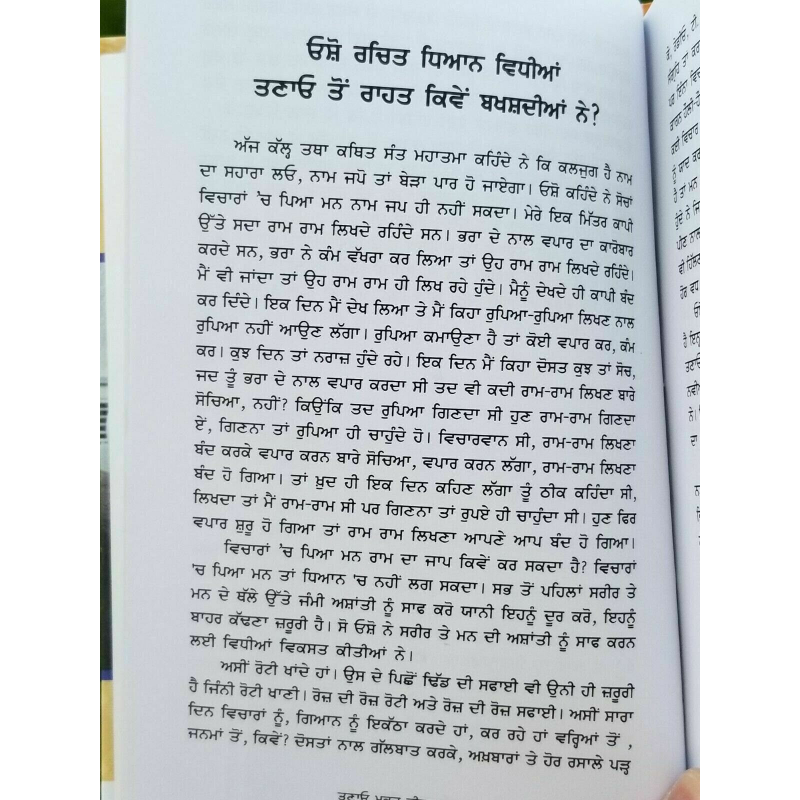 ਓਸ਼ੋ ਰਚਿਤ ਧਿਆਨ ਵਿਧੀਆਂ
ਤਣਾਓ ਤੋਂ ਰਾਹਤ ਕਿਵੇਂ ਬਖਸ਼ਦੀਆਂ ਨੇ?
ਅੱਜ ਕੱਲ੍ਹ ਤਥਾ ਕਥਿਤ ਸੰਤ ਮਹਾਤਮਾ ਕਹਿੰਦੇ ਨੇ ਕਿ ਕਲਜੁਗ ਹੈ ਨਾਮ
ਦਾ ਸਹਾਰਾ ਲਓ, ਨਾਮ ਜਪੋ ਤਾਂ ਬੇੜਾ ਪਾਰ ਹੋ ਜਾਏਗਾ। ਓਸ਼ੋ ਕਹਿੰਦੇ ਨੇ ਸੋਚਾਂ
ਵਿਚਾਰਾਂ 'ਚ ਪਿਆ ਮਨ ਨਾਮ ਜਪ ਹੀ ਨਹੀਂ ਸਕਦਾ। ਮੇਰੇ ਇਕ ਮਿੱਤਰ ਕਾਪੀ
ਉੱਤੇ ਸਦਾ ਰਾਮ ਰਾਮ ਲਿਖਦੇ ਰਹਿੰਦੇ ਸਨ। ਭਰਾ ਦੇ ਨਾਲ ਵਪਾਰ ਦਾ ਕਾਰੋਬਾਰ
ਕਰਦੇ ਸਨ, ਭਰਾ ਨੇ ਕੰਮ ਵੱਖਰਾ ਕਰ ਲਿਆ ਤਾਂ ਉਹ ਰਾਮ ਰਾਮ ਲਿਖਦੇ ਰਹਿੰਦੇ।
ਮੈਂ ਵੀ ਜਾਂਦਾ ਤਾਂ ਉਹ ਰਾਮ ਰਾਮ ਹੀ ਲਿਖ ਰਹੇ ਹੁੰਦੇ। ਮੈਨੂੰ ਦੇਖਦੇ ਹੀ ਕਾਪੀ ਬੰਦ
ਕਰ ਦਿੰਦੇ। ਇਕ ਦਿਨ ਮੈਂ ਦੇਖ ਲਿਆ ਤੇ ਮੈਂ ਕਿਹਾ ਰੁਪਿਆ-ਰੁਪਿਆ ਲਿਖਣ ਨਾਲ
ਰੁਪਿਆ ਨਹੀਂ ਆਉਣ ਲੱਗਾ। ਰੁਪਿਆ ਕਮਾਉਣਾ ਹੈ ਤਾਂ ਕੋਈ ਵਪਾਰ ਕਰ, ਕੰਮ
ਕਰ। ਕੁਝ ਦਿਨ ਤਾਂ ਨਰਾਜ਼ ਹੁੰਦੇ ਰਹੇ। ਇਕ ਦਿਨ ਮੈਂ ਕਿਹਾ ਦੋਸਤ ਕੁਝ ਤਾਂ ਸੋਚ,
ਜਦ ਤੂੰ ਭਰਾ ਦੇ ਨਾਲ ਵਪਾਰ ਕਰਦਾ ਸੀ ਤਦ ਵੀ ਕਦੀ ਰਾਮ-ਰਾਮ ਲਿਖਣ ਬਾਰੇ
ਸੋਚਿਆ, ਨਹੀਂ? ਕਿਉਂਕਿ ਤਦ ਰੁਪਿਆ ਗਿਣਦਾ ਸੀ ਹੁਣ ਰਾਮ-ਰਾਮ ਗਿਣਦਾ
ਏਂ, ਗਿਣਨਾ ਤਾਂ ਰੁਪਿਆ ਹੀ ਚਾਹੁੰਦੇ ਹੋ। ਵਿਚਾਰਵਾਨ ਸੀ, ਰਾਮ-ਰਾਮ ਲਿਖਣਾ
ਬੰਦ ਕਰਕੇ ਵਪਾਰ ਕਰਨ ਬਾਰੇ ਸੋਚਿਆ, ਵਪਾਰ ਕਰਨ ਲੱਗਾ, ਰਾਮ-ਰਾਮ ਲਿਖਣਾ
ਬੰਦ ਹੋ ਗਿਆ। ਤਾਂ ਖ਼ੁਦ ਹੀ ਇਕ ਦਿਨ ਕਹਿਣ ਲੱਗਾ ਤੂੰ ਠੀਕ ਕਹਿੰਦਾ ਸੀ,
ਲਿਖਦਾ ਤਾਂ ਮੈਂ ਰਾਮ-ਰਾਮ ਸੀ ਪਰ ਗਿਣਨਾ ਤਾਂ ਰੁਪਏ ਹੀ ਚਾਹੁੰਦਾ ਸੀ। ਹੁਣ ਫਿਰ
ਵਪਾਰ ਸ਼ੁਰੂ ਹੋ ਗਿਆ ਤਾਂ ਰਾਮ ਰਾਮ ਲਿਖਣਾ ਆਪਣੇ ਆਪ ਬੰਦ ਹੋ ਗਿਆ।
ਵਿਚਾਰਾਂ 'ਚ ਪਿਆ ਮਨ ਰਾਮ ਦਾ ਜਾਪ ਕਿਵੇਂ ਕਰ ਸਕਦਾ ਹੈ? ਵਿਚਾਰਾਂ
'ਚ ਪਿਆ ਮਨ ਤਾਂ ਧਿਆਨ 'ਚ ਨਹੀਂ ਲਗ ਸਕਦਾ। ਸਭ ਤੋਂ ਪਹਿਲਾਂ ਸਰੀਰ ਤੇ
ਮਨ ਦੇ ਥੱਲੇ ਉੱਤੇ ਜੰਮੀ ਅਸ਼ਾਂਤੀ ਨੂੰ ਸਾਫ ਕਰੋ ਯਾਨੀ ਇਹਨੂੰ ਦੂਰ ਕਰੋ, ਇਹਨੂੰ
ਬਾਹਰ ਕੱਢਣਾ ਜ਼ਰੂਰੀ ਹੈ। ਸੋ ਓਸ਼ੋ ਨੇ ਸਰੀਰ ਤੇ ਮਨ ਦੀ ਅਸ਼ਾਂਤੀ ਨੂੰ ਸਾਫ ਕਰਨ
ਲਈ ਵਿਧੀਆਂ ਵਿਕਸਤ ਕੀਤੀਆਂ ਨੇ।
ਅਸੀਂ ਰੋਟੀ ਖਾਂਦੇ ਹਾਂ। ਉਸ ਦੇ ਪਿਛੋਂ ਢਿੱਡ ਦੀ ਸਫਾਈ ਵੀ ਉਨੀ ਹੀ ਜ਼ਰੂਰੀ
ਹੈ ਜਿੰਨੀ ਰੋਟੀ ਖਾਣੀ। ਰੋਜ਼ ਦੀ ਰੋਜ਼ ਰੋਟੀ ਅਤੇ ਰੋਜ਼ ਦੀ ਰੋਜ਼ ਸਫਾਈ। ਅਸੀਂ ਸਾਰਾ
ਦਿਨ ਵਿਚਾਰਾਂ ਨੂੰ, ਗਿਆਨ ਨੂੰ ਇਕੱਠਾ ਕਰਦੇ ਹਾਂ, ਕਰ ਰਹੇ ਹਾਂ ਵਰ੍ਹਿਆਂ ਤੋਂ ,
ਜਨਮਾਂ ਤੋਂ, ਕਿਵੇਂ? ਦੋਸਤਾਂ ਨਾਲ ਗੱਲਬਾਤ ਕਰਕੇ, ਅਖ਼ਬਾਰਾਂ ਤੇ ਹੋਰ ਰਸਾਲੇ ਪੜ੍ਹ